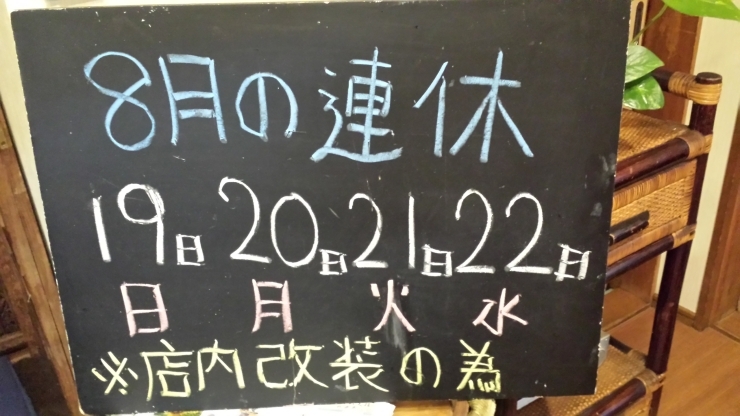 8月の連休
19日20日21日22日
日 月 火 水
※店内改装の為